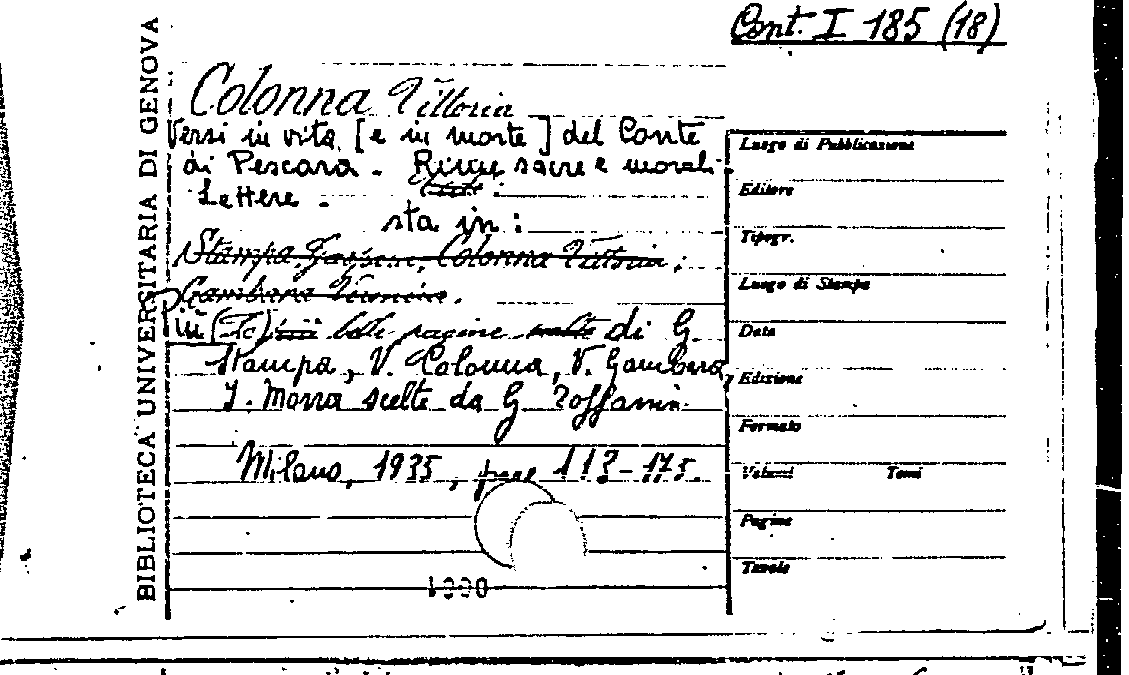 Cont. I 185 (18)
BIBLIOTECA UNIVERSITARIA DI GENOVA
Colonna Vittoria
Versi in vita [e in morte] del Conte
di Pescara - Rime sacre e morali -
Lettere -
sta in:
Stampa Gaspara, Colonna Vittoria,
Gambara Veronica.
in (Le) belle pagine scelte di G.
Stampa, V. Colonna, V. Gambara,
I. Morra scelte da G. Toffanin.
Milano, 1935, pag. 113-175.
1990
Luogo di Pubblicazione
Editore
Tipogr.
Luogo di Stampa
Data
Edizione
Formato
Volumi Tomi
Pagine
Tavole